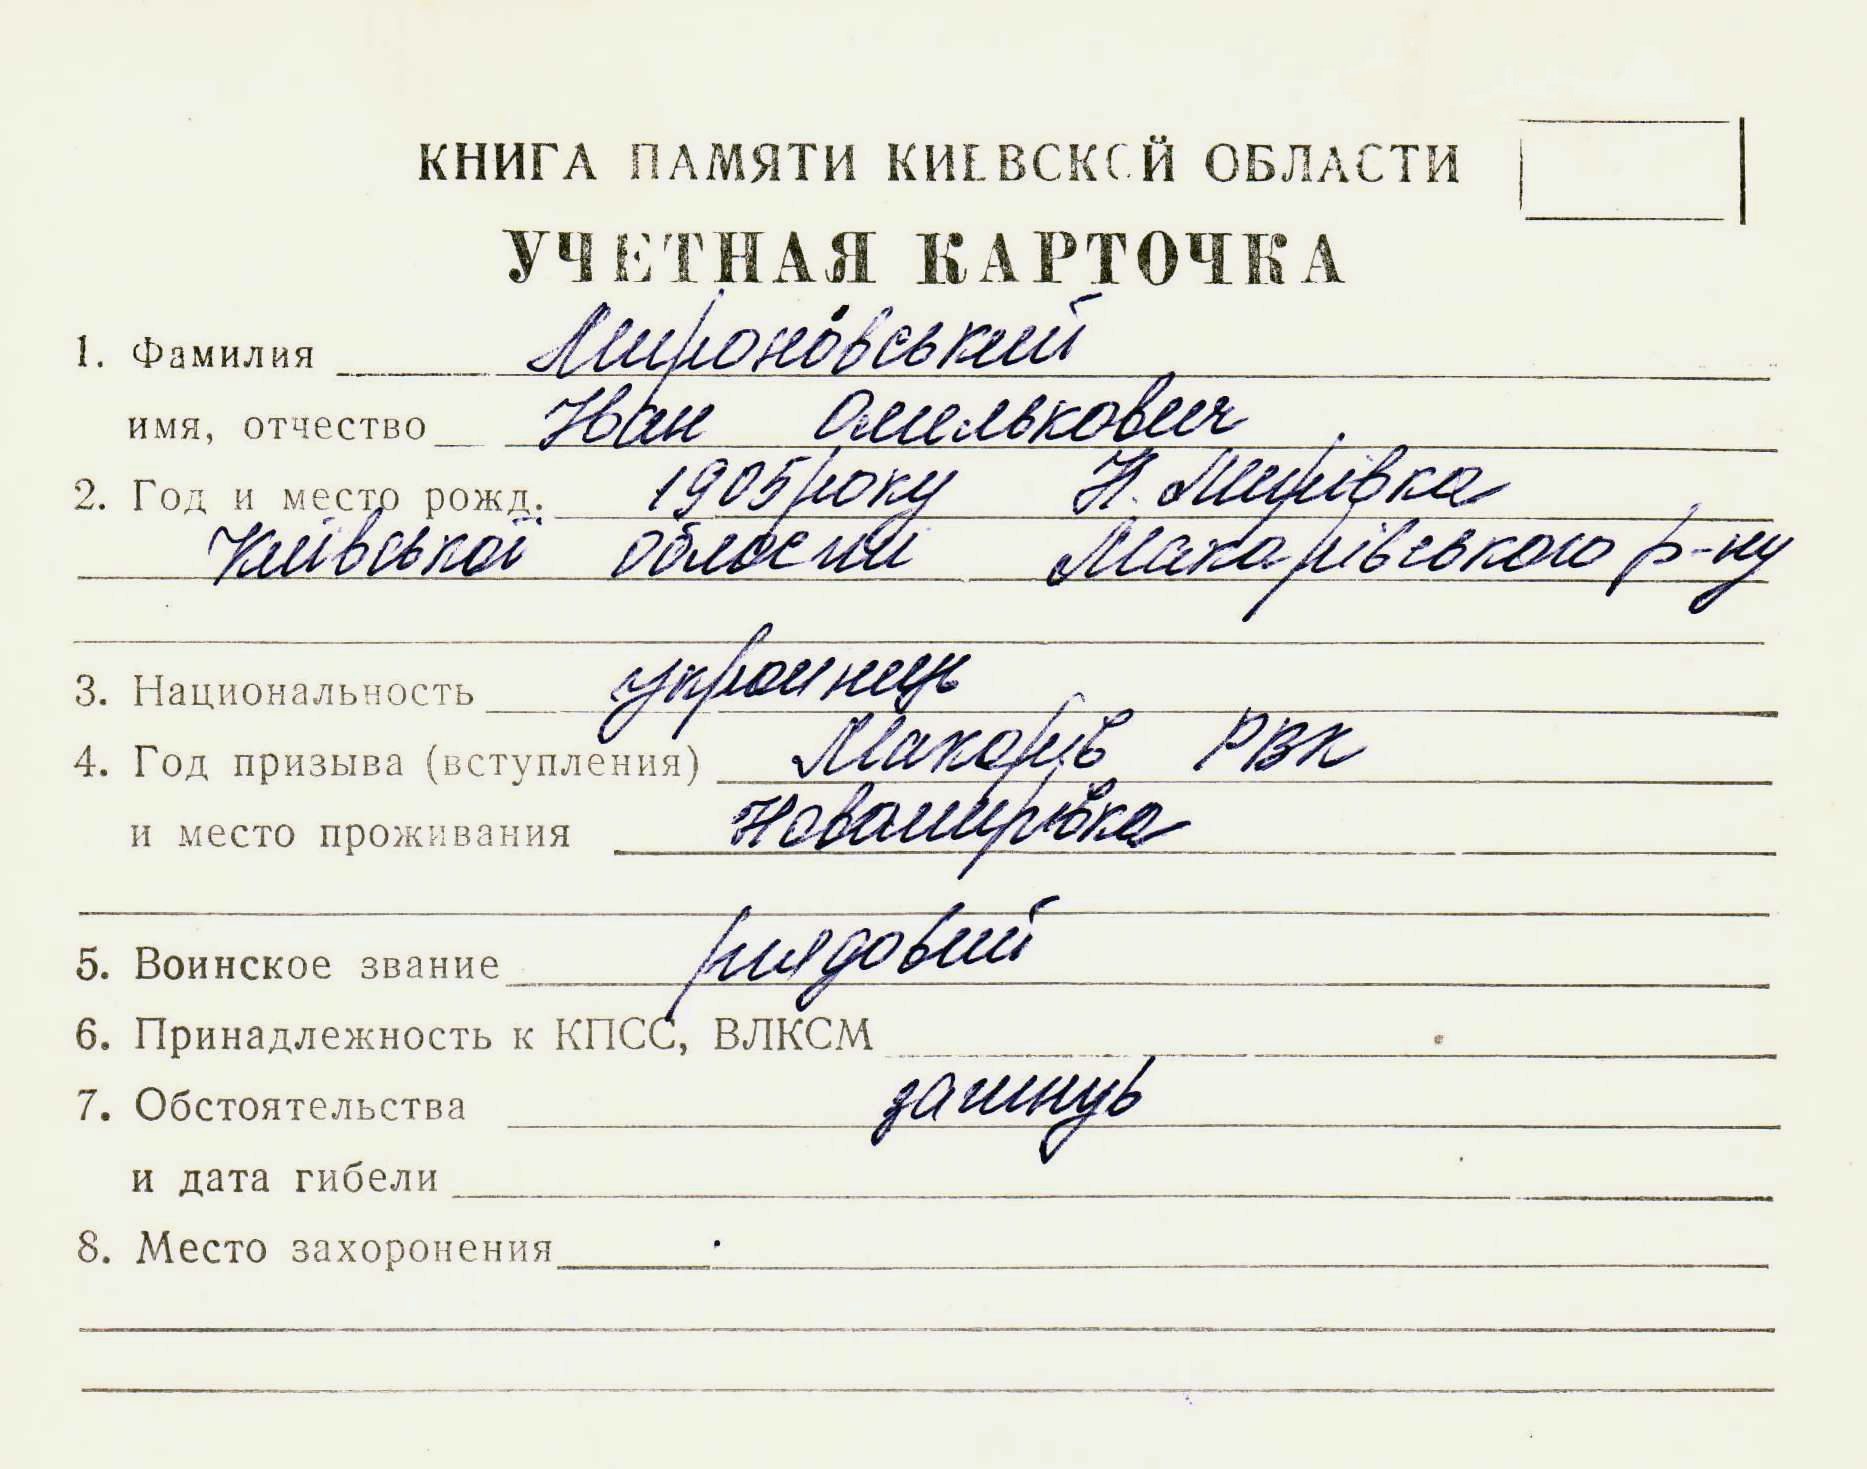 КНИГА ПАМЯТИ КИЕВСКОЙ ОБЛАСТИ
УЧЕТНАЯ КАРТОЧКА
1. Фамилия Мироновський
имя, отчество Іван Омелькович
2. Год и место рожд. 1905 року Н. Мирівка
Київської області Макарівського р-ну
3. Национальность украинець
4. Год призыва (вступления) Макарів РВК
и место проживания Новомирівка
5. Воинское звание рядовий
6. Принадлежность к КПСС, ВЛКСМ
7. Обстоятельства загинув
и дата гибели
8. Место захоронения